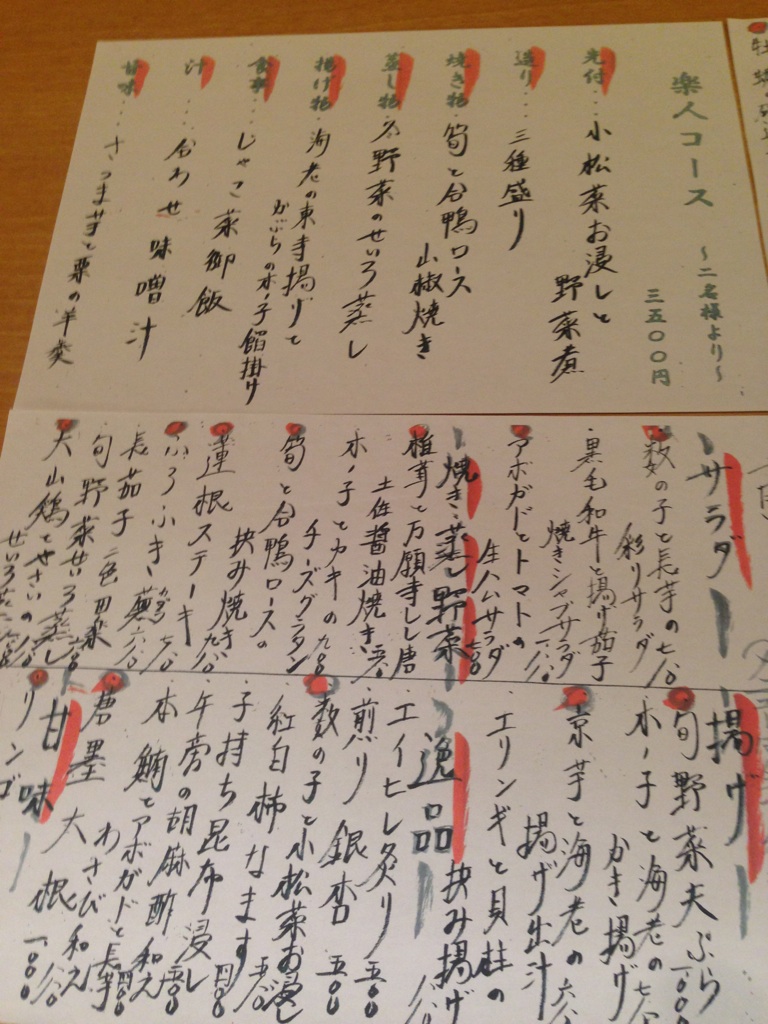 楽人コース
〜二名様より〜
三五〇〇円
先付…小松菜お浸しと
野菜煮
造り…三種盛り
焼き物 筍と合鴨ロース
山椒焼き
蒸し物 冬野菜のせいろ蒸し
揚げ物 海老の東寺揚げと
かぶらの木ノ子餡掛け
食事…じゃこ菜御飯
汁…合わせ味噌汁
甘味…さつま芋と栗の羊羹
サラダ
数の子と長芋の
彩りサラダ
黒毛和牛と揚げ茄子
焼きシャブサラダ
アボガドとトマトの
生ハムサラダ
焼き・蒸し野菜
椎茸と万願寺しし唐
土佐醤油焼き
木ノ子とカキの
チーズグラタン
筍と合鴨ロースの
挟み焼き
蓮根ステーキ
ふろふき蕪
長茄子二色田楽
旬野菜せいろ蒸し
大山鶏とやさいの
せいろ蒸し
揚げ
旬野菜天ぷら
木ノ子と海老の
かき揚げ
京芋と海老の
揚げ出汁
エリンギと貝柱の
挟み揚げ
逸品
エイヒレ炙り 五〇〇
煎り銀杏 五〇〇
数の子と小松菜お浸し
紅白柿なます
子持ち昆布浸し
牛蒡の胡麻酢和え
本鮪とアボガドと長芋
わさび和え
唐墨大根
甘味
リンゴ